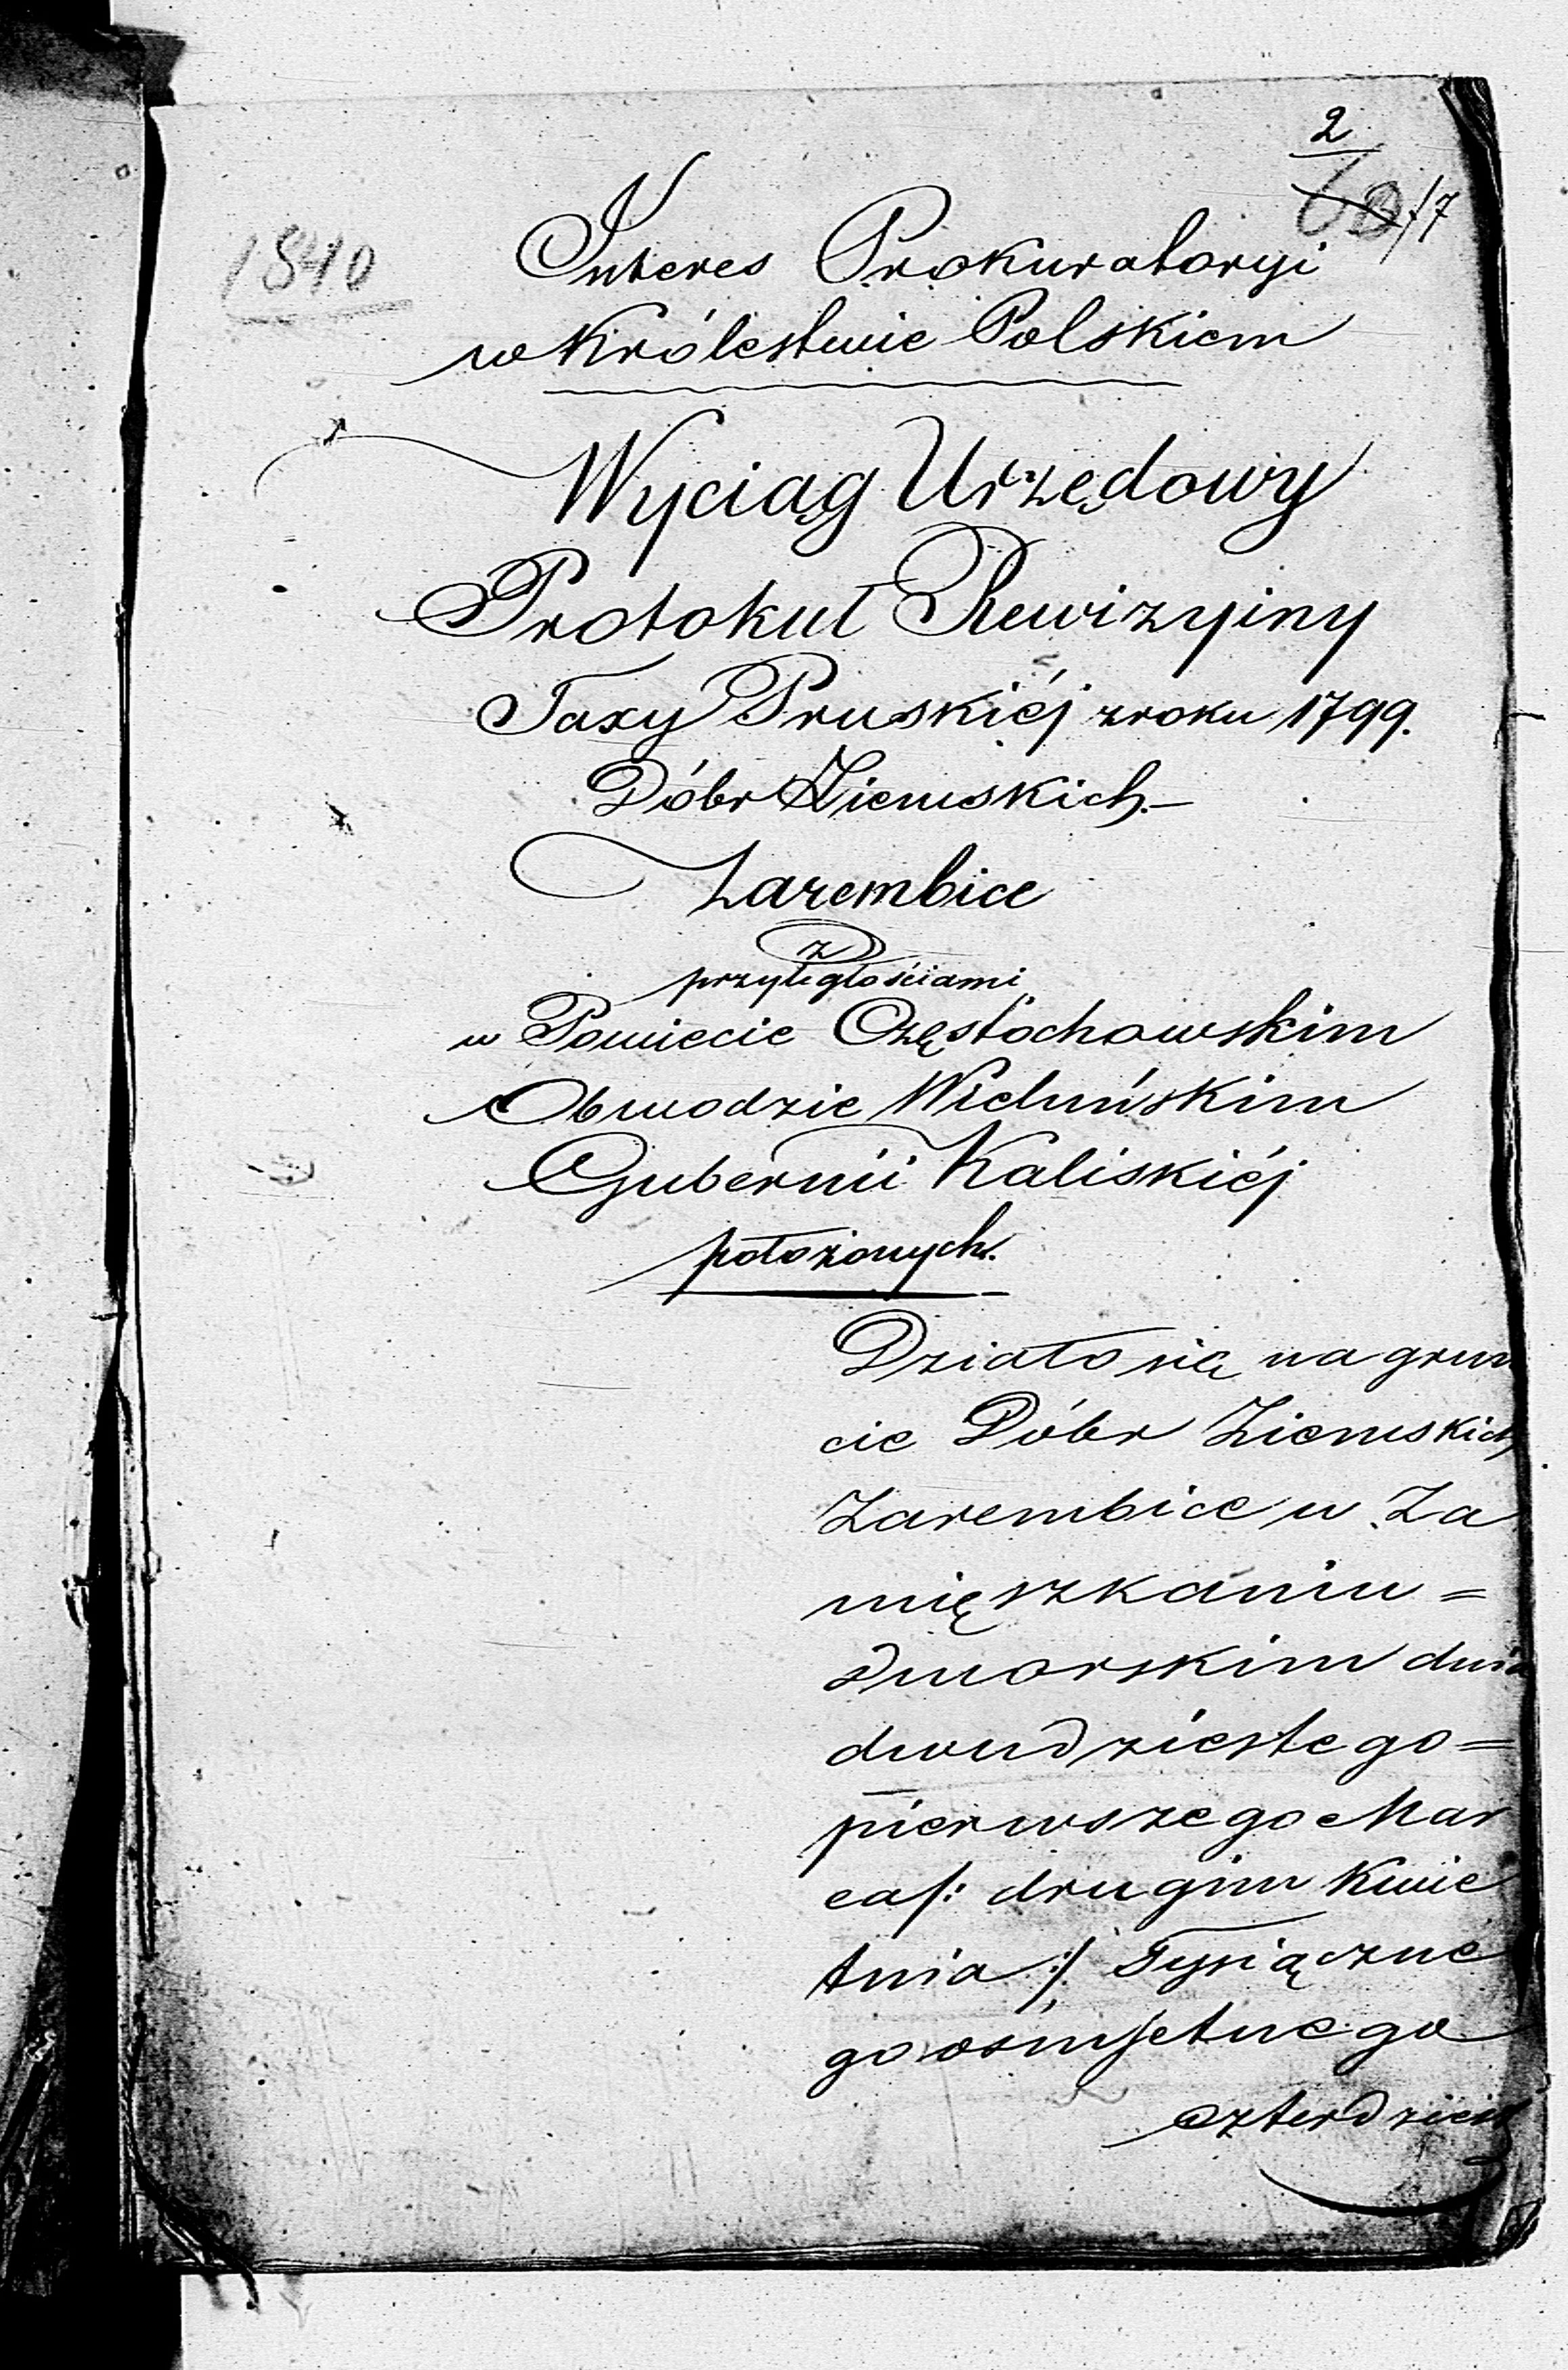 2
17
1840
Interes Prokuratoryi
w Królestwie Polskiem
Wyciąg Urzędowy
Protokuł Rewizyiny
Taxy Pruskiéj z roku 1799.
Dóbr Ziemskich.—
Zarembice
z
przyległościami
w Powiecie Częstochowskim
Obwodzie Wieluńskim
Gubernii Kaliskiéj
położonych.
Działo się na grun
cie Dóbr Ziemskich
Zarembice w Za
mięszkaniu =
dworskim dnia
dwudziestego =
pierwszego Mar
ca /: drugim Kwie
tnia :/ Tysiączne
go osmsetnego
czterdziest